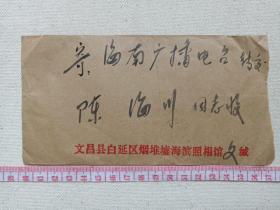 寄 海南广播电台 转交
陈海川 同志收
文昌县白延区烟堆墟海滨照相馆 文 缄